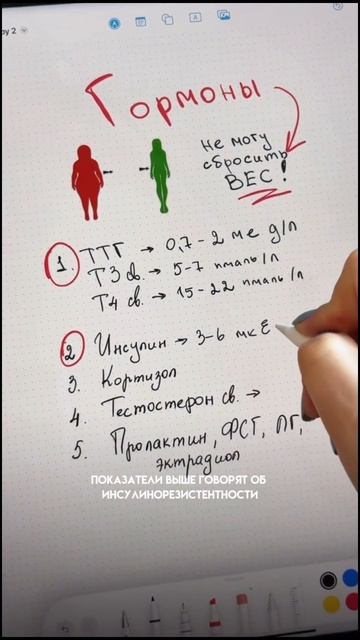 ру 2
Гормоны
не могу
сбросить
ВЕС!
1. ТТГ → 0,7-2 ме д/л
Т3 св. → 5-7 пмаль/л
Т4 св. → 15-22 пмаль/л
2 Инсулин → 3-6 мкЕ
3. Кортизол
4. Тестостерон св. →
5. Пролактин, ФСГ, ЛГ,
эктрадиол
ПОКАЗАТЕЛИ ВЫШЕ ГОВОРЯТ ОБ
ИНСУЛИНОРЕЗИСТЕНТНОСТИ